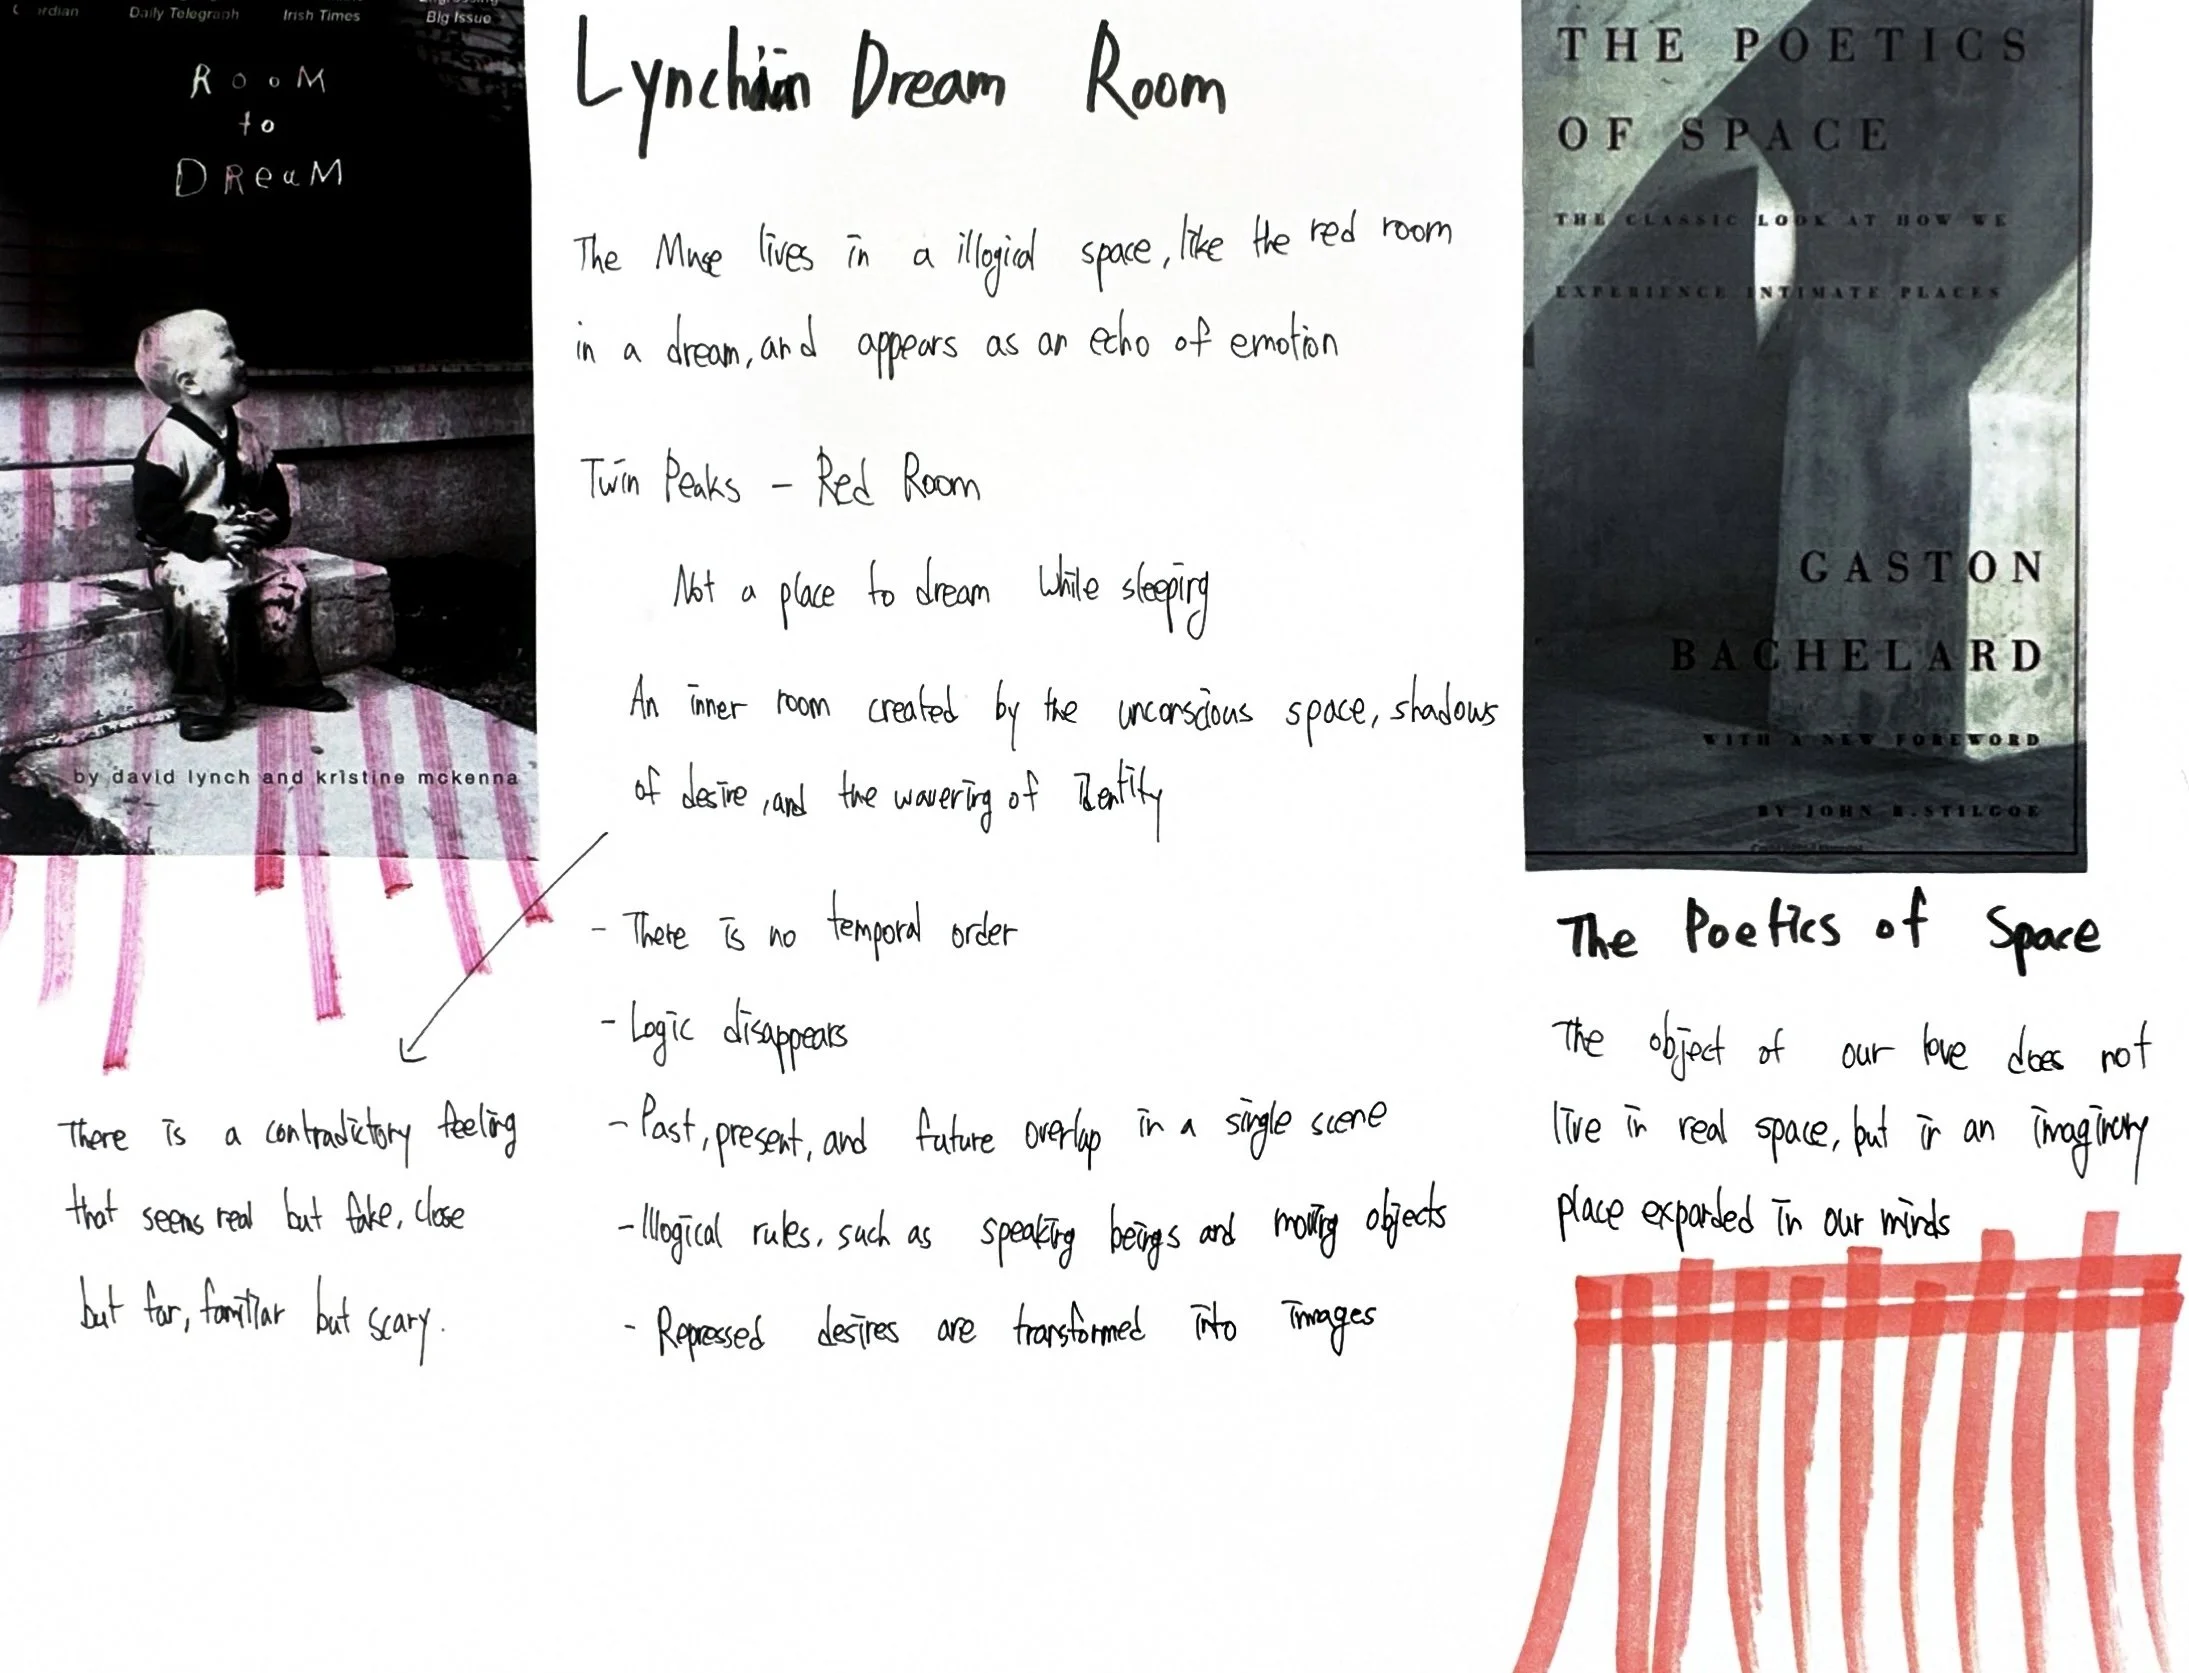 Daily Telegraph
Irish Times
Big Issue
ROOM
to
DREAM
by david lynch and kristine mckenna
There is a contradictory feeling
that seems real but fake, close
but far, familiar but scary.
Lynchian Dream Room
The Muse lives in a illogical space, like the red room
in a dream, and appears as an echo of emotion
Twin Peaks - Red Room
Not a place to dream while sleeping
An inner room created by the unconscious space, shadows
of desire, and the wavering of identity
- There is no temporal order
- Logic disappears
- Past, present, and future overlap in a single scene
- Illogical rules, such as speaking beings and moving objects
- Repressed desires are transformed into images
THE POETICS
OF SPACE
THE CLASSIC LOOK AT HOW WE
EXPERIENCE INTIMATE PLACES
GASTON
BACHELARD
WITH A NEW FOREWORD
BY JOHN R. STILGOE
The Poetics of Space
The object of our love does not
live in real space, but in an imaginary
place expanded in our minds